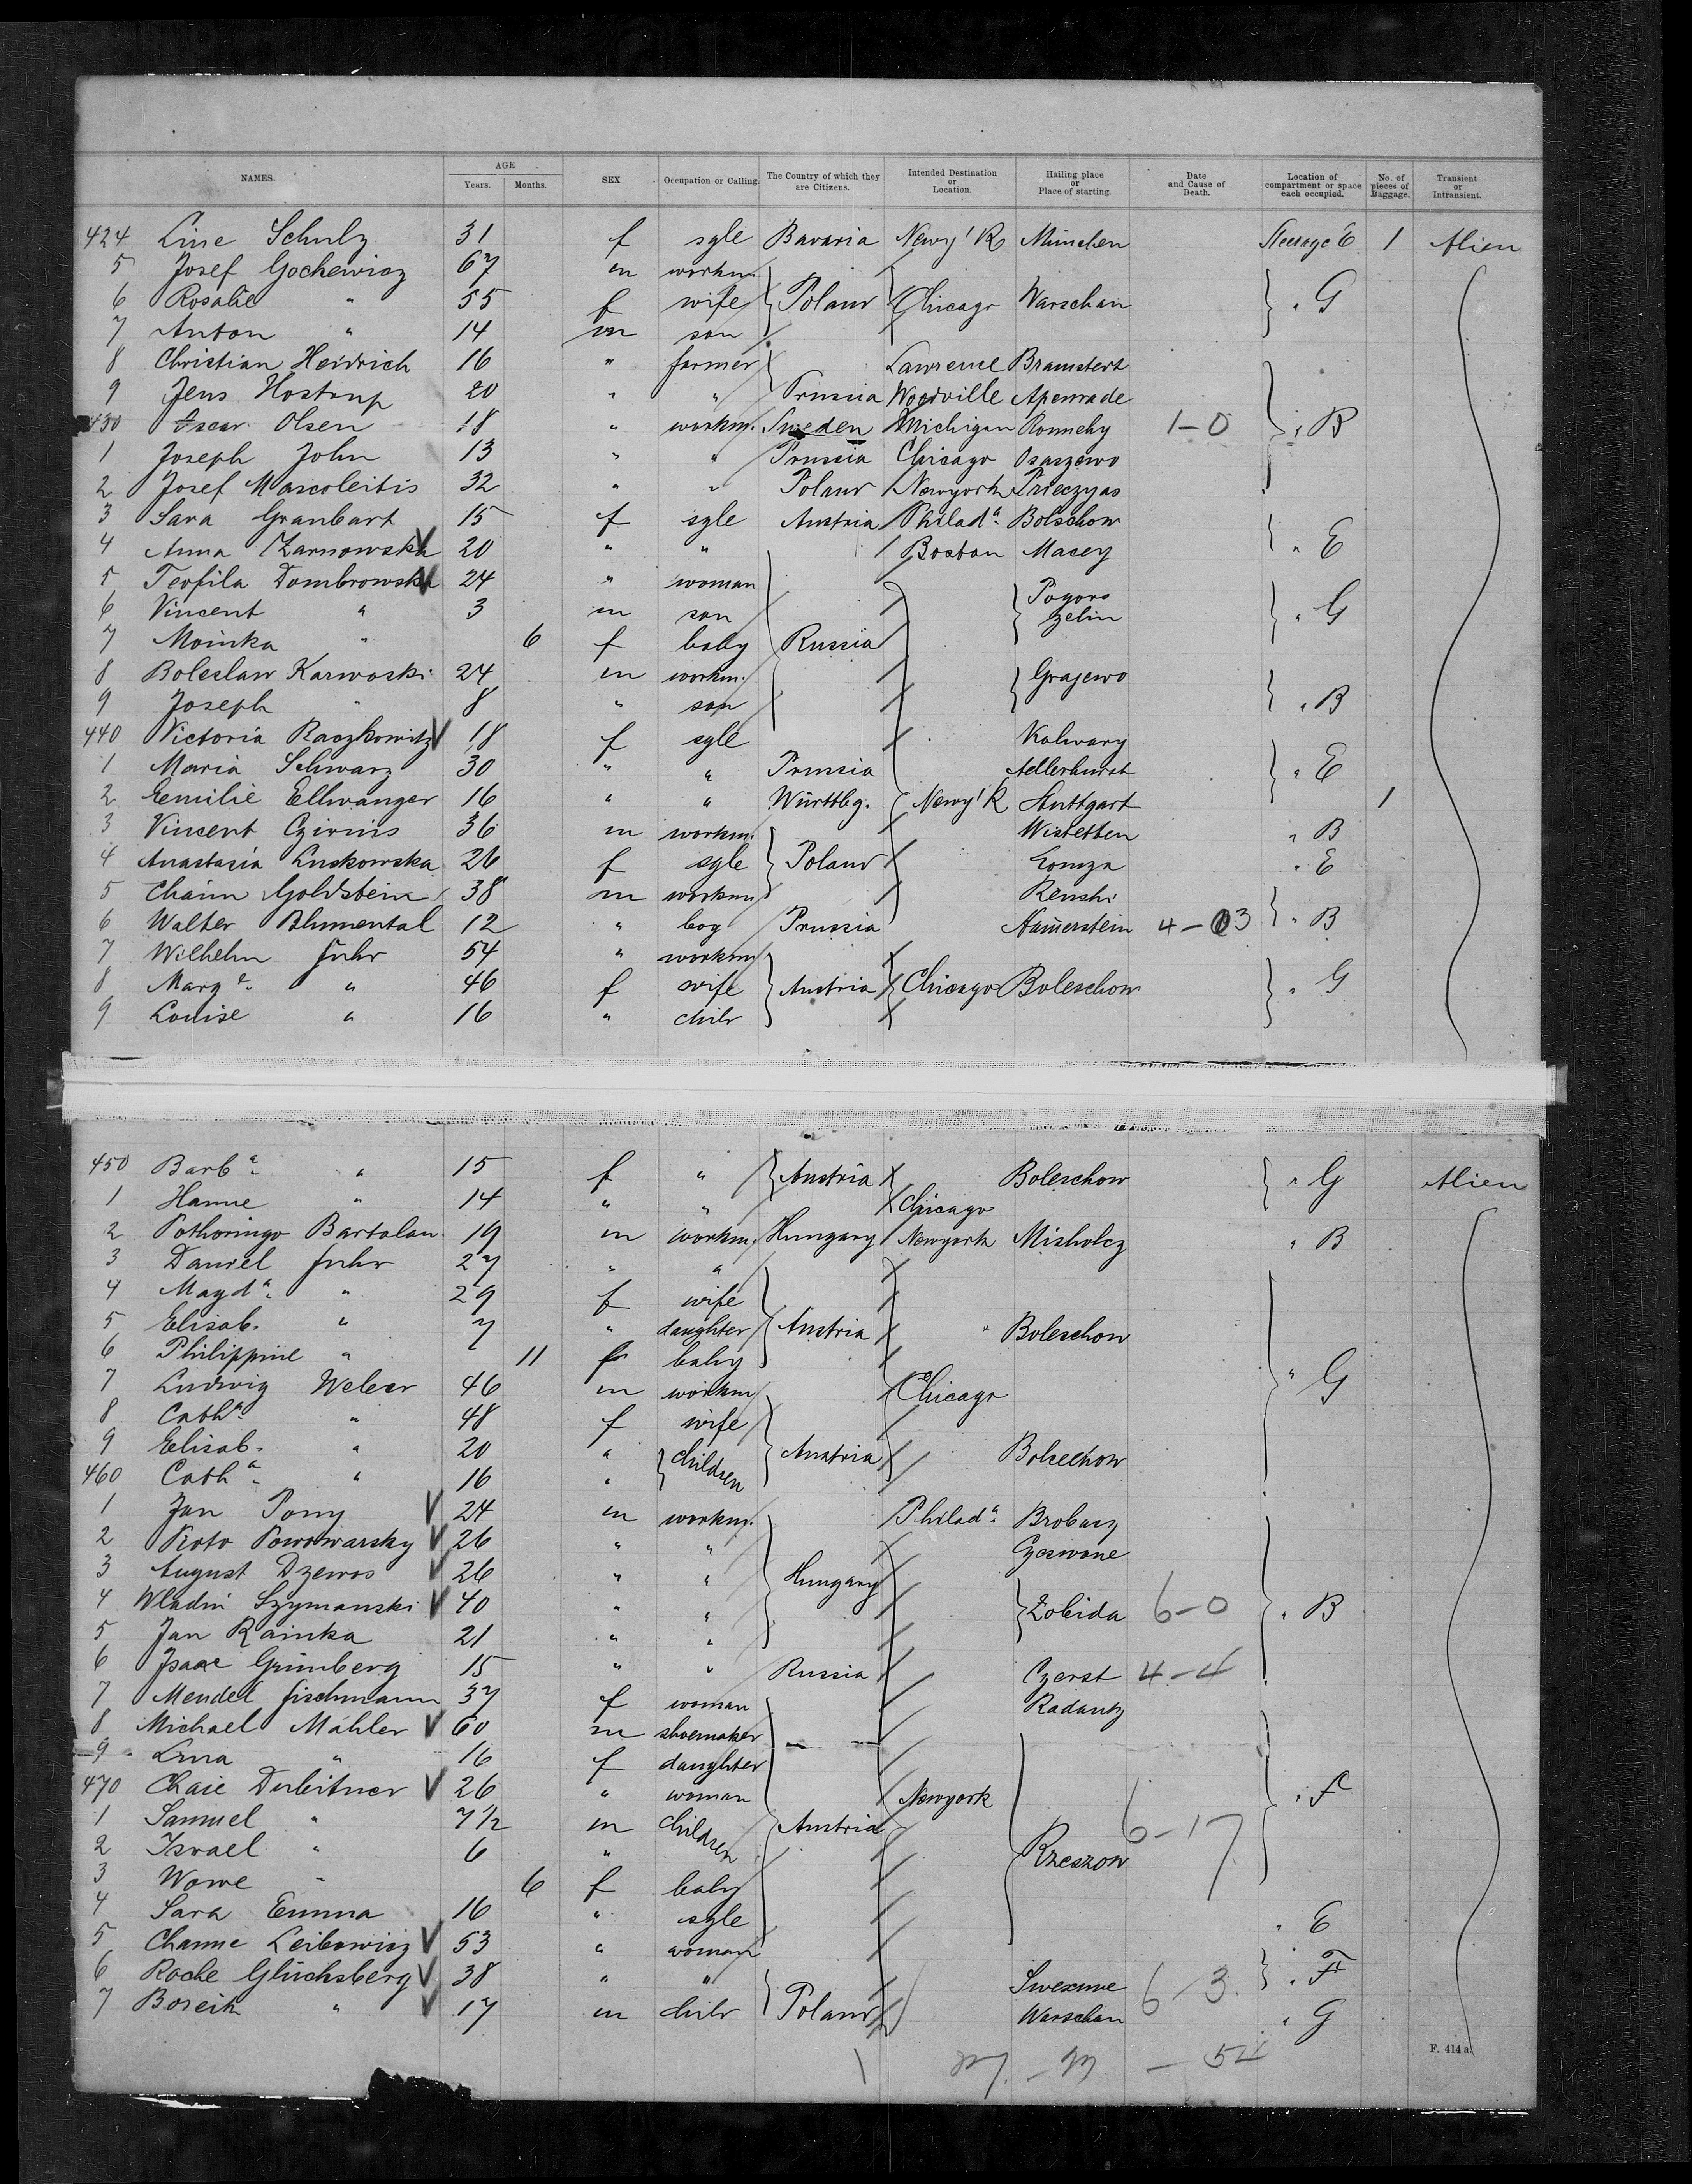 NAMES. AGE Years. Months. SEX Occupation or Calling. The Country of which they are Citizens. Intended Destination or Location. Hailing place or Place of starting. Date and Cause of Death. Location of compartment or space each occupied. No. of pieces of Baggage. Transient or Intransient.
424 Line Schulz 31 f sgle Bavaria Newy'k München Steerage E 1 Alien
5 Josef Gochewicz 67 m workm.
6 Rosalie " 55 f wife Poland Chicago Warschau " G
7 Anton " 14 m son
8 Christian Heidrich 16 " farmer Lawrence Bramstedt
9 Jens Hostrup 20 " " Prussia Woodville Apenrade
430 Oscar Olsen 18 " workm. Sweden Michigan Ronneby 1-0 " B
1 Joseph John 13 " " Prussia Chicago Osaszewo
2 Josef Mascoleitis 32 " " Poland Newyork
3 Sara Granbart 15 f sgle Austria Philada. Bolschow
4 Anna Zarnowska 20 " " Boston Macey " E
5 Teofila Dombrowska 24 " woman
6 Vincent " 3 m son Pogorozelin " G
7 Moinka " 6 f baby Russia
8 Boleslaw Karwoski 24 m workm. Grajewo
9 Joseph " 8 " son " B
440 Victoria Raczkowitz 18 f sgle Kalwary
1 Maria Schwarz 30 " " Prussia Adlerhurst " E
2 Eemilie Ellwanger 16 " " Württbg. Newy'k Stuttgart 1
3 Vincent Czirinis 36 m workm. Wistetten " B
4 Anastasia Luskowska 26 f sgle Poland Lomza " E
5 Chaim Goldstein 38 m workm Renski
6 Walter Blumental 12 " boy Prussia Hamerstein 4-03 " B
7 Wilhelm Juhr 54 " workm
8 Marga. " 46 f wife Austria Chicago Boleschow " G
9 Louise " 16 " child
450 Barba. " 15 f " Austria Boleschow " G Alien
1 Hanne " 14 " " Chicago
2 Pothoringo Bartolan 19 m workm. Hungary Newyork Misholcz " B
3 Daniel Juhr 27 " "
4 Magda. " 29 f wife
5 Elisab. " 7 " daughter Austria " Boleschow
6 Philippine " 11 f baby
7 Ludwig Weber 46 m workm Chicago " G
8 Catha. " 48 f wife
9 Elisab. " 20 " children Austria Bolsechow
460 Catha. " 16 "
1 Jan Pony 24 m workm. Philada.
2 Koto Powowarsky 26 " " Czerwone
3 August Dzewos 26 " " Hungary
4 Wladin Szymanski 40 " " Zobida 6-0 " B
5 Jan Rainka 21 " "
6 Isaac Grünberg 15 " " Russia Czerst 4-4
7 Mendel Fischmann 37 f woman Radautz
8 Michael Mähler 60 m shoemaker
9 Lina " 16 f daughter
470 Chaie Derleitner 26 " woman Newyork " F
1 Samuel " 7 1/2 m children Austria 6-17
2 Israel " 6 " Rzeszow
3 Wowe " 6 f baby
4 Sara Emma 16 " sgle " E
5 Channe Leibowicz 53 " woman
6 Roche Glücksberg 38 " " 6-3 " F
7 Boreik " 17 m child Poland Warschau " G
27. - 27 - 54
F. 414 a.